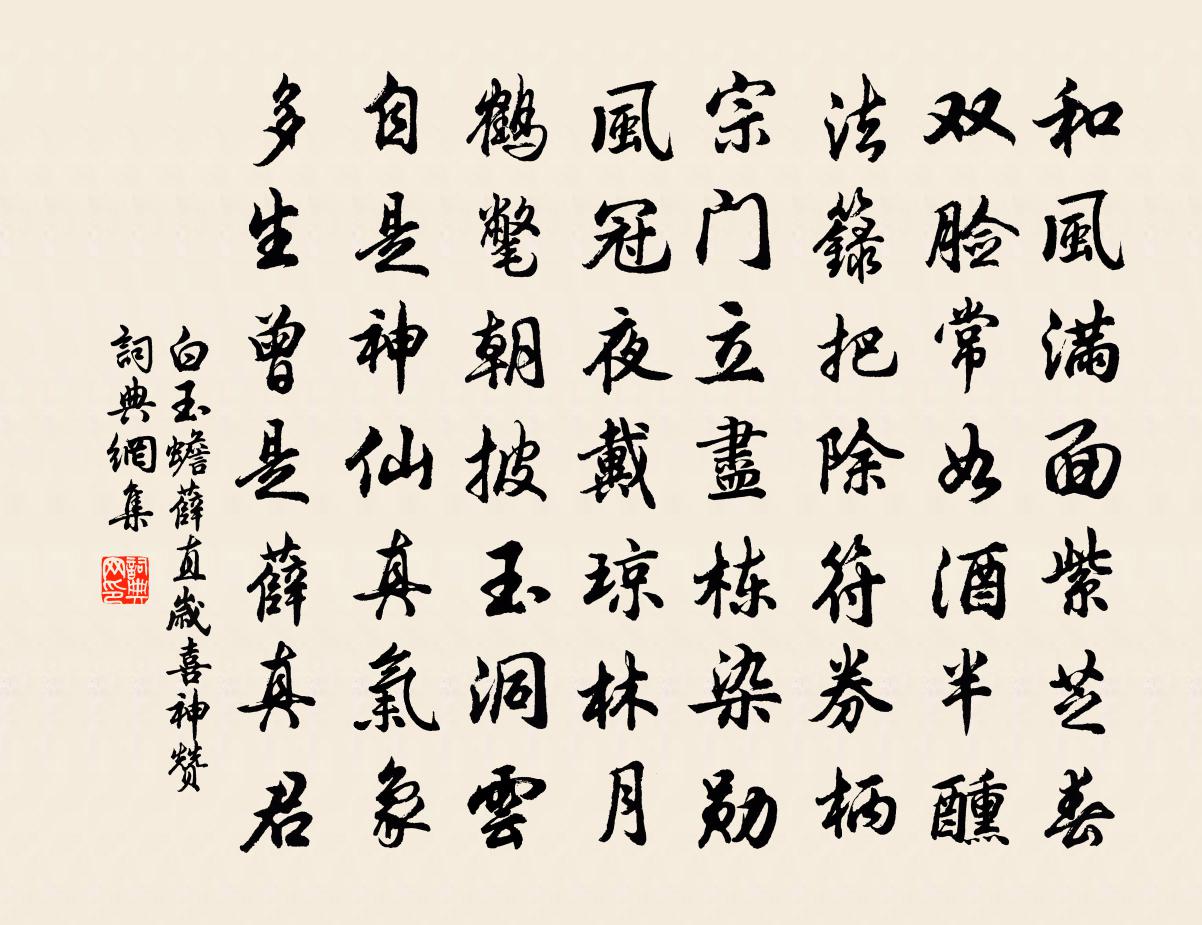 和風满面紫芝春
双脸常如酒半醺
法籙把除符券柄
宗门立盡栋染勋
風冠夜戴琼林月
鶴氅朝披玉洞雲
自是神仙真氣象
多生曾是薛真君
白玉蟾薛直歲喜神赞
詞典網集
詞典网印